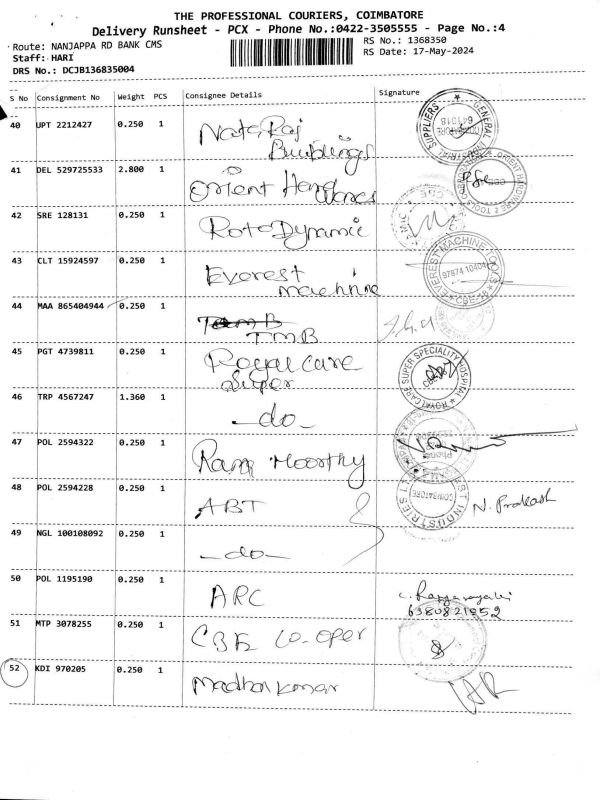 THE PROFESSIONAL COURIERS, COIMBATORE
Delivery Runsheet - PCX - Phone No.:0422-3505555 - Page No.:4
Route: NANJAPPA RD BANK CMS
RS No.: 1368350
Staff: HARI
RS Date: 17-May-2024
DRS No.: DCJB136835004
S No Consignment No Weight PCS Consignee Details Signature
40 UPT 2212427 0.250 1 Nataraj
Buildings
GENERAL INDUSTRIAL SUPPLIERS
641018
41 DEL 529725533 2.800 1 Orient Hard
wares
42 SRE 128131 0.250 1 Roto Dynamic
43 CLT 15924597 0.250 1 Everest
machine
EVEREST MACHINE TOOLS
97874 10404
CBE-18
44 MAA 865404944 0.250 1
TMB
45 PGT 4739811 0.250 1 Royal care
Super
ROYAL CARE SUPER SPECIALITY HOSPITAL
46 TRP 4567247 1.360 1 -do-
47 POL 2594322 0.250 1 Ram Moorthy
48 POL 2594228 0.250 1 ABT
INDUSTRIES
COIMBATORE
N. Prakash
49 NGL 100108092 0.250 1 -do-
50 POL 1195190 0.250 1 ARC
51 MTP 3078255 0.250 1 CBE co-oper
52 KDI 970205 0.250 1